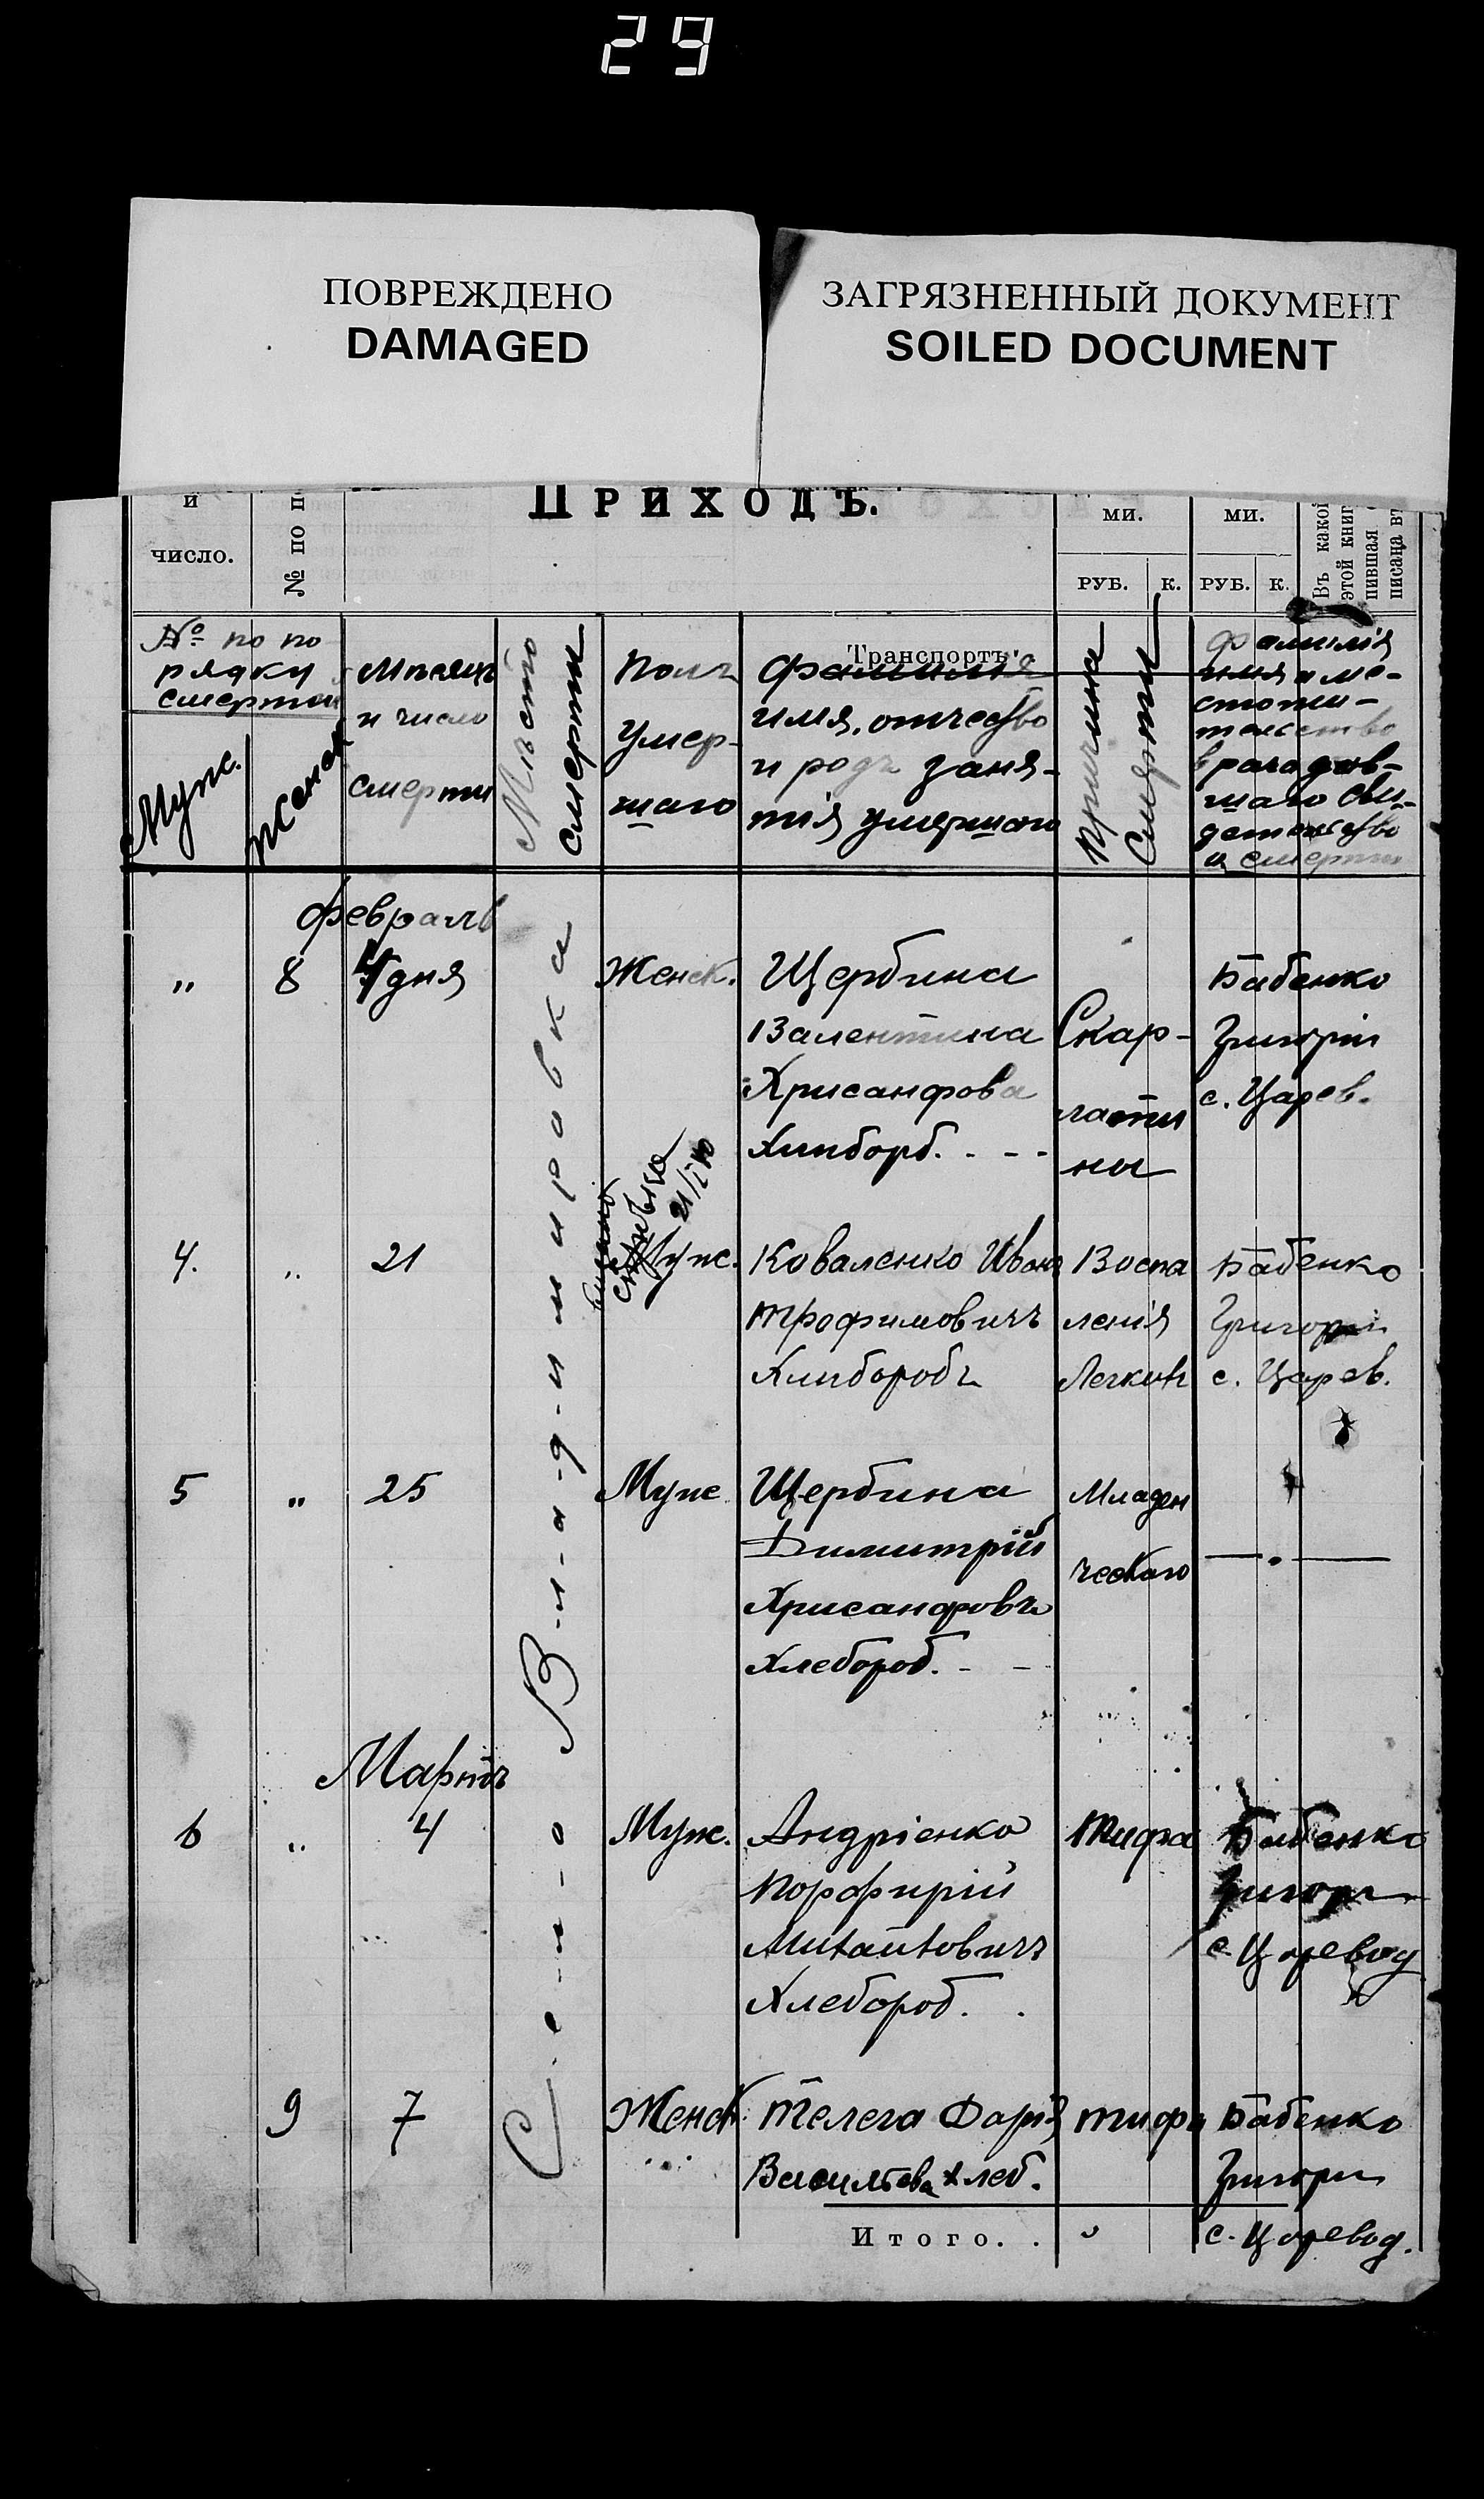 29
ПОВРЕЖДЕНО
DAMAGED
ЗАГРЯЗНЕННЫЙ ДОКУМЕНТ
SOILED DOCUMENT
и
число.
№ по п
ПРИХОДЪ.
ми.
РУБ. К.
ми.
РУБ. К.
Въ какой
этой книг
пившая
писана въ
Транспортъ
№ по по
рядку
смерти
Муж.
Женск
Мѣсяцъ
и число
смерти
Мѣсто
смерти
Полъ
умер-
шаго
Фамилія
имя, отчество
и родъ заня-
тія умершаго
Причина
Смерти
Фамилія
имя и ме-
стожи-
тельство
врача дав-
шаго сви-
детельство
о смерти
Село Владимировка
Февраль
„ 8 4 дня Женск.
Щербина
Валентина
Хрисанфова
Хлибороб. - -
Скар-
лати
на
Бабенко
Григорій
с. Царев.
4. „ 21 Муж.
21/I
Коваленко Иванъ
Трофимовичъ
Хлиборобъ
Воспа
ленія
Легкихъ
Бабенко
Григорій
с. Царев.
5 „ 25 Муже
Щербина
Димитрій
Хрисанфовъ
Хлебороб. - -
Младен
ческаго
— „ —
Мартъ
6 „ 4 Муж.
Андріенко
Порфирій
Михайловичъ
Хлебороб.
Тифа
Бабенко
Григорі
с. Царевод
9 7 Женск.
Телега Дарія
Васильева Хлеб.
тифъ
Бабенко
Григорі
с. Царевод.
Итого. . „